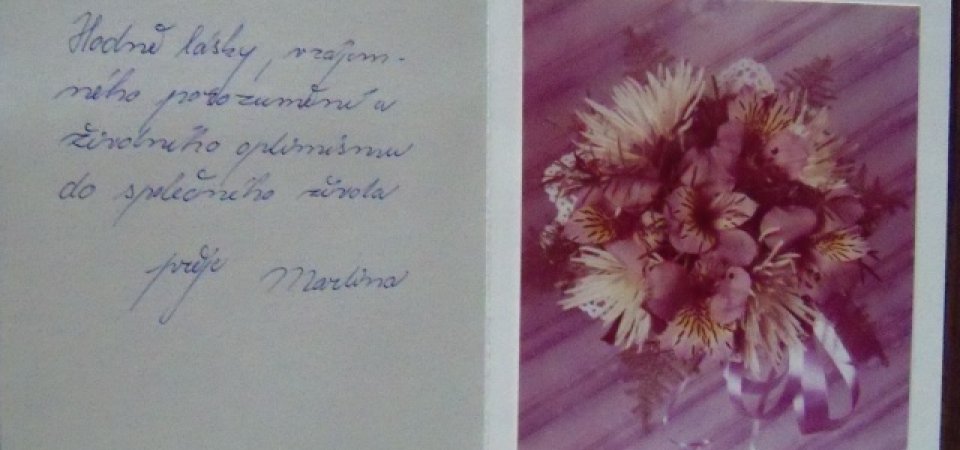 Hodně lásky, vzájem-
ného porozumění a
životního optimismu
do společného života
přeje Martina